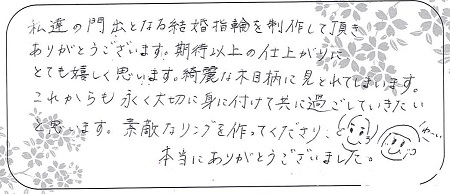 私達の門出となる結婚指輪を制作して頂き
ありがとうございます。期待以上の仕上がりに
とても嬉しく思います。綺麗な木目柄に見とれてしまいます。
これからも永く大切に身に付けて共に過ごしていきたい
と思います。素敵なリングを作ってくださり、
本当にありがとうございました。
わーい